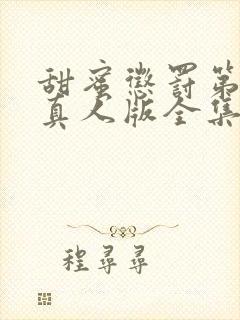 甜蜜惩罚第
真人版全集
程寻寻